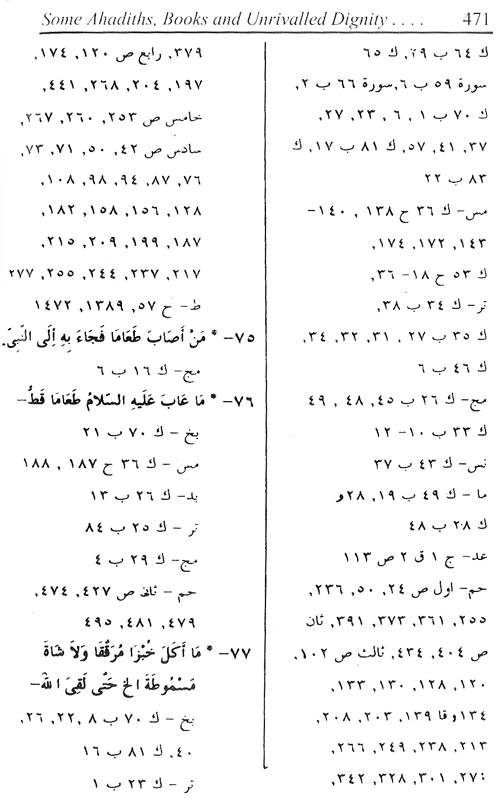 Some Ahadiths, Books and Unrivalled Dignity . . . . 471
ك ٦٤ ب ٦٩, ك ٦٥
سورة ٥٩ ب ٦, سورة ٦٦ ب ٢,
ك ٧٠ ب ١ , ٦ , ٢٣, ٢٧,
٣٧, ٤١, ٥٧, ك ٨١ ب ١٧, ك
٨٣ ب ٢٢
مس- ك ٣٦ ح ١٣٨ , ١٤٠-
١٤٣, ١٧٢, ١٧٤,
ك ٥٣ ح ١٨- ٣٦,
تر- ك ٣٤ ب ٣٨,
ك ٣٥ ب ٢٧ , ٣١, ٣٢, ٣٤,
ك ٤٦ ب ٦
مج- ك ٢٦ ب ٤٥, ٤٨ , ٤٩
ك ٣٣ ب ١٠- ١٢
نس- ك ٤٣ ب ٣٧
ما - ك ٤٩ ب ١٩, ٢٨و
ك ٢٨ ب ٤٨
عد- ج ١ ق ٢ ص ١١٣
حم- اول ص ٢٤, ٥٠, ٢٣٦,
٢٥٥, ٣٦١, ٣٧٣, ٣٩١, ثان
ص ٤٠٤, ٤٣٤, ثالث ص ١٠٢,
١٢٠, ١٢٨, ١٣٠, ١٣٣,
١٣٤ و قا ١٣٩, ٢٠٣, ٢٠٨,
٢١٣, ٢٣٨, ٢٤٩, ٢٦٦,
٢٧٠, ٣٠١, ٣٢٨, ٣٤٢,
٣٧٩, رابع ص ١٢٠, ١٧٤,
١٩٧, ٢٠٤, ٢٦٨, ٤٤١,
خامس ص ٢٥٣, ٢٦٠, ٢٦٧,
سادس ص ٤٢, ٥٠, ٧١, ٧٣,
٧٦, ٨٧, ٩٤, ٩٨, ١٠٨,
١٢٨, ١٥٦, ١٥٨, ١٨٢,
١٨٧, ١٩٩, ٢٠٩, ٢١٥,
٢١٧, ٢٣٧, ٢٤٤, ٢٥٥, ٢٧٧
ط- ح ٥٧, ١٣٨٩, ١٤٧٢
٧٥- * مَنْ أَصَابَ طَعَامَا فَجَاءَ بِهِ إِلَى النَّبِيِّ.
مج- ك ١٦ ب ٦
٧٦- * مَا عَابَ عَلَيهِ السَّلامُ طَعَامَا قَطُّ-
بخ - ك ٧٠ ب ٢١
مس - ك ٣٦ ح ١٨٧ , ١٨٨
بد- ك ٢٦ ب ١٣
تر - ك ٢٥ ب ٨٤
مج- ك ٢٩ ب ٤
حم - ثان ص ٤٢٧, ٤٧٤,
٤٧٩, ٤٨١, ٤٩٥
٧٧- * مَا أَكَلَ خُبْزَا مُرَقَّقَا وَلاَ شَاةَ
مَسْمُوطَةَ الخ حَتَّى لَقِىَ الله-
بخ - ك ٧٠ ب ٨ ,٢٢, ٢٦,
٤٠, ك ٨١ ب ١٦
تر - ك ٢٣ ب ١